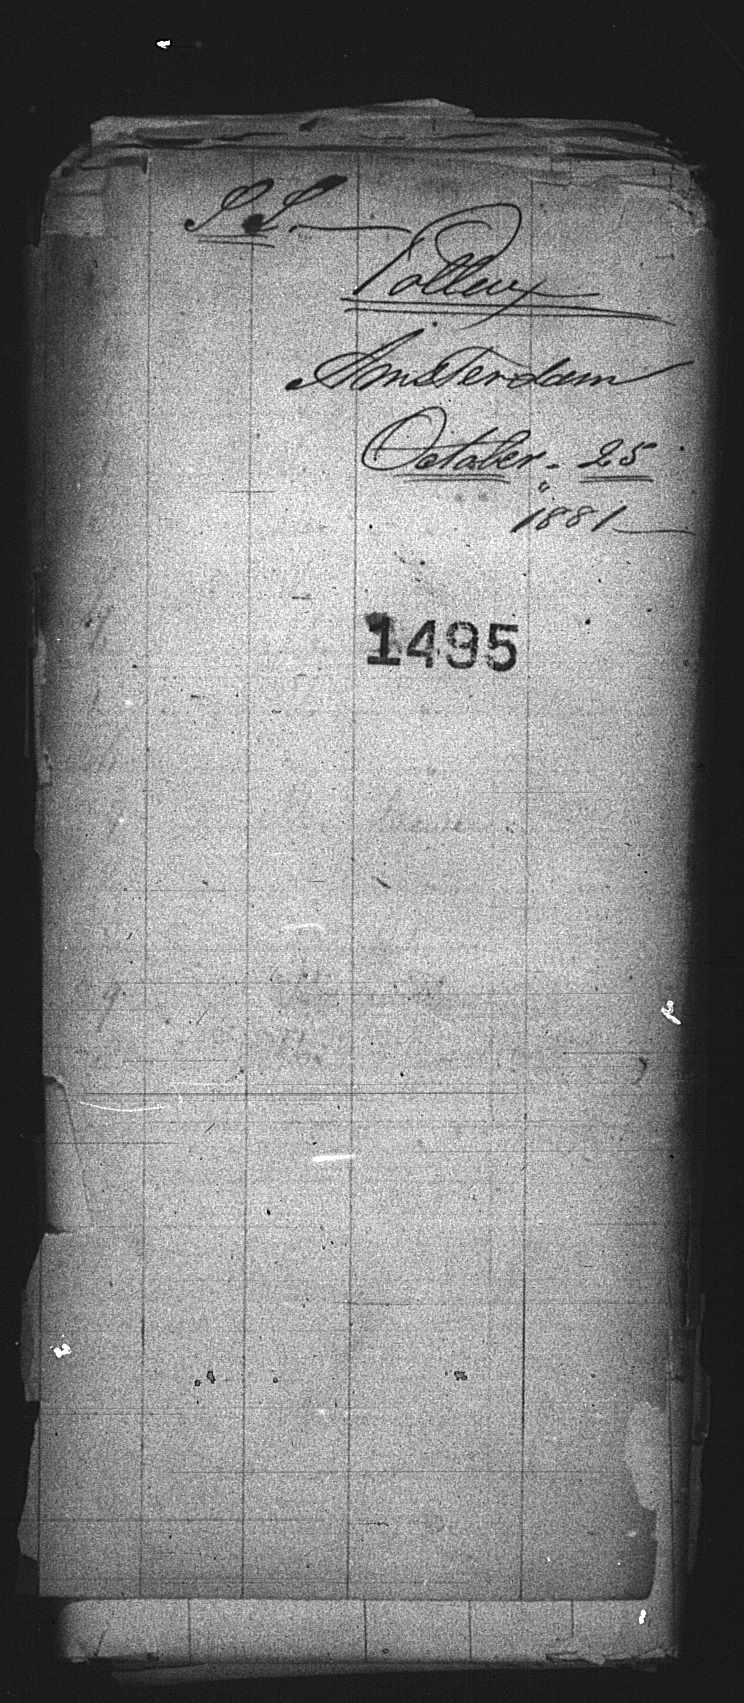 S.S.
Pollux
Amsterdam
October - 25
1881
1495